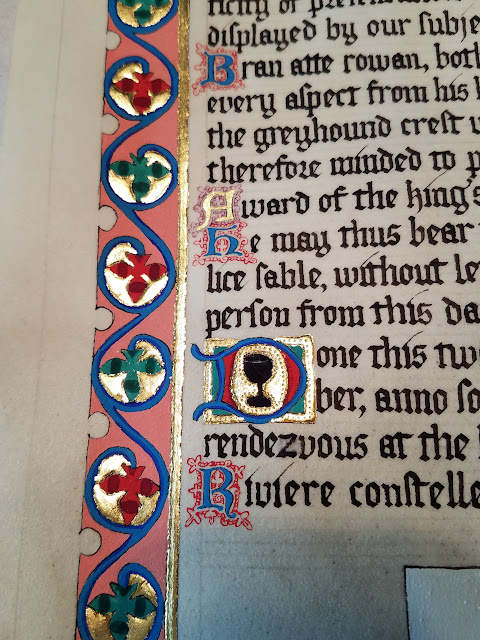 ticity of preſen
diſplayed by our ſubje
Bran atte rowan, bot
every aſpect from his
the greyhound creſt
therefore minded to p
Award of the king's
He may thus bear
lice ſable, without le
perſon from this da
Done this tw
ber, anno ſo
rendezvous at the
Riviere conſtelle